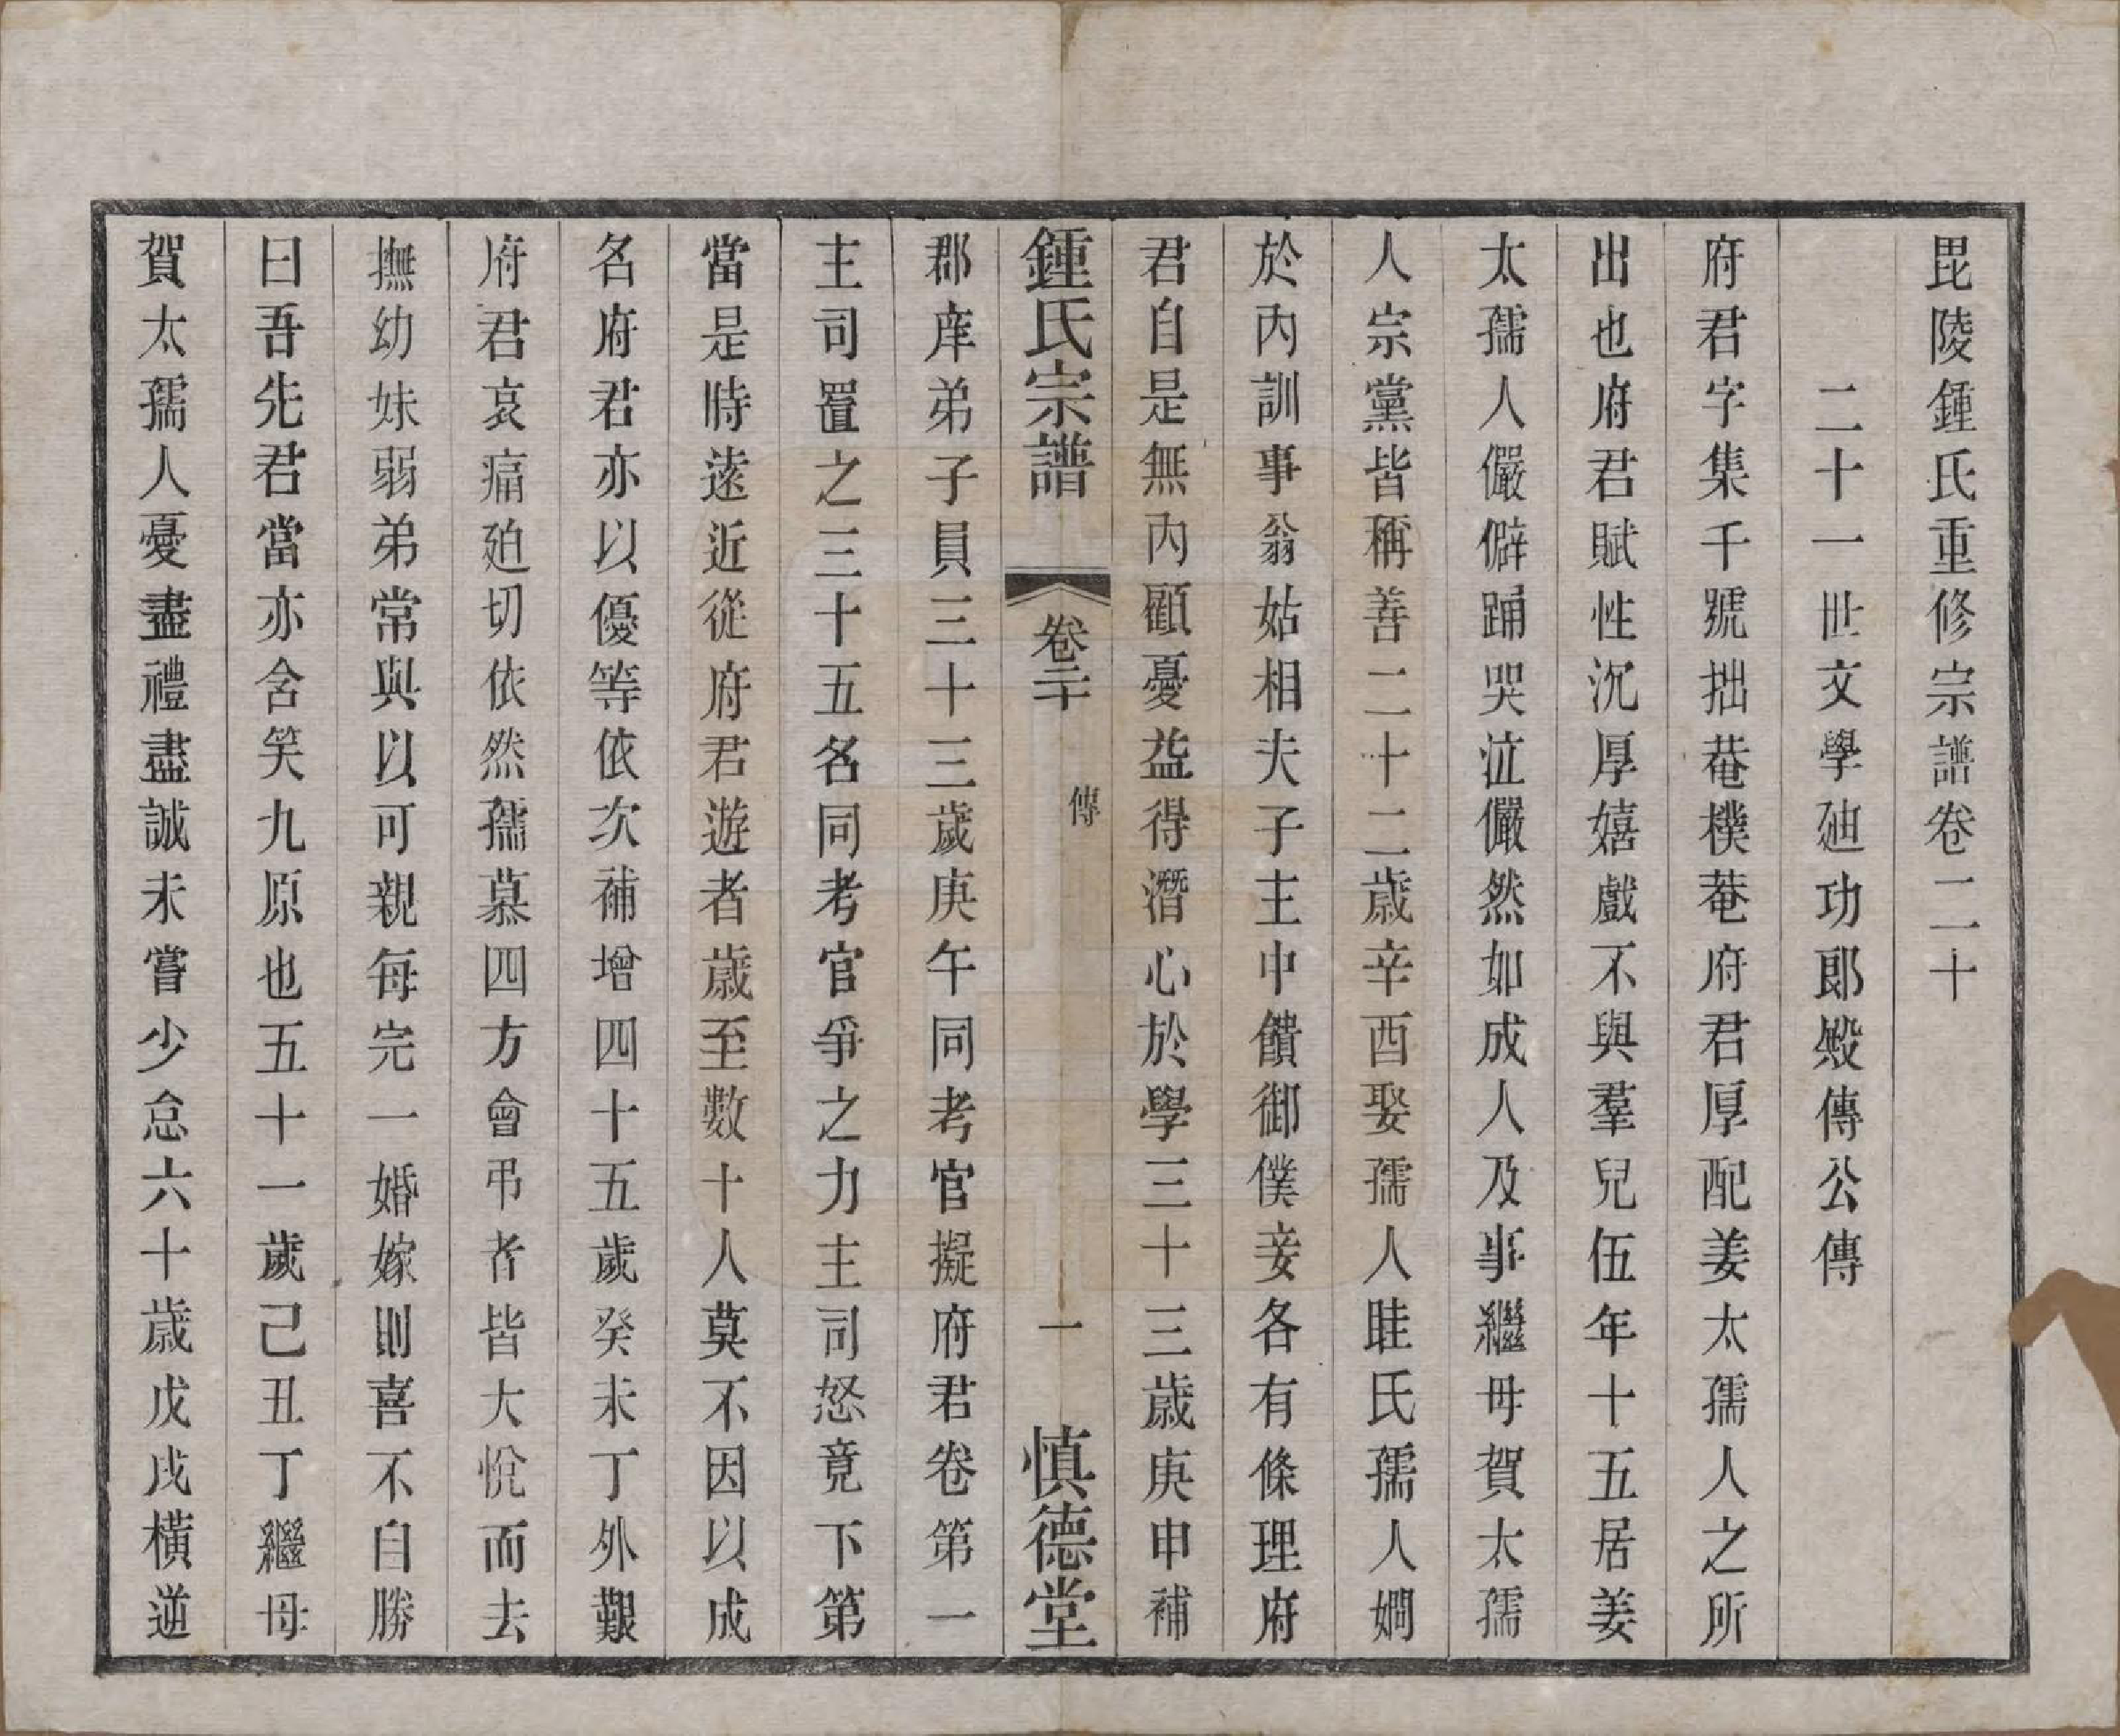 毘陵鍾氏重修宗譜卷二十
二十一世文學廸功郎殿傳公傳
府君字集千號拙菴樸菴府君厚配姜太孺人之所
出也府君賦性沉厚嬉戲不與羣兒伍年十五居姜
太孺人儼僻踊哭泣儼然如成人及事繼母賀太孺
人宗黨皆稱善二十二歲辛酉娶孺人眭氏孺人嫻
於內訓事翁姑相夫子主中饋御僕妾各有條理府
君自是無內顧憂益得潛心於學三十三歲庚申補
鍾氏宗譜
卷二十
傳
一
慎德堂
郡庠弟子員三十三歲庚午同考官擬府君卷第一
主司置之三十五名同考官爭之力主司怒竟下第
當是時遠近從府君遊者歲至數十人莫不因以成
名府君亦以優等依次補增四十五歲癸未丁外艱
府君哀痛廹切依然孺慕四方會弔者皆大悅而去
撫幼妹弱弟常與以可親每完一婚嫁則喜不自勝
曰吾先君當亦含笑九原也五十一歲己丑丁繼母
賀太孺人憂盡禮盡誠未嘗少怠六十歲戊戌橫逆